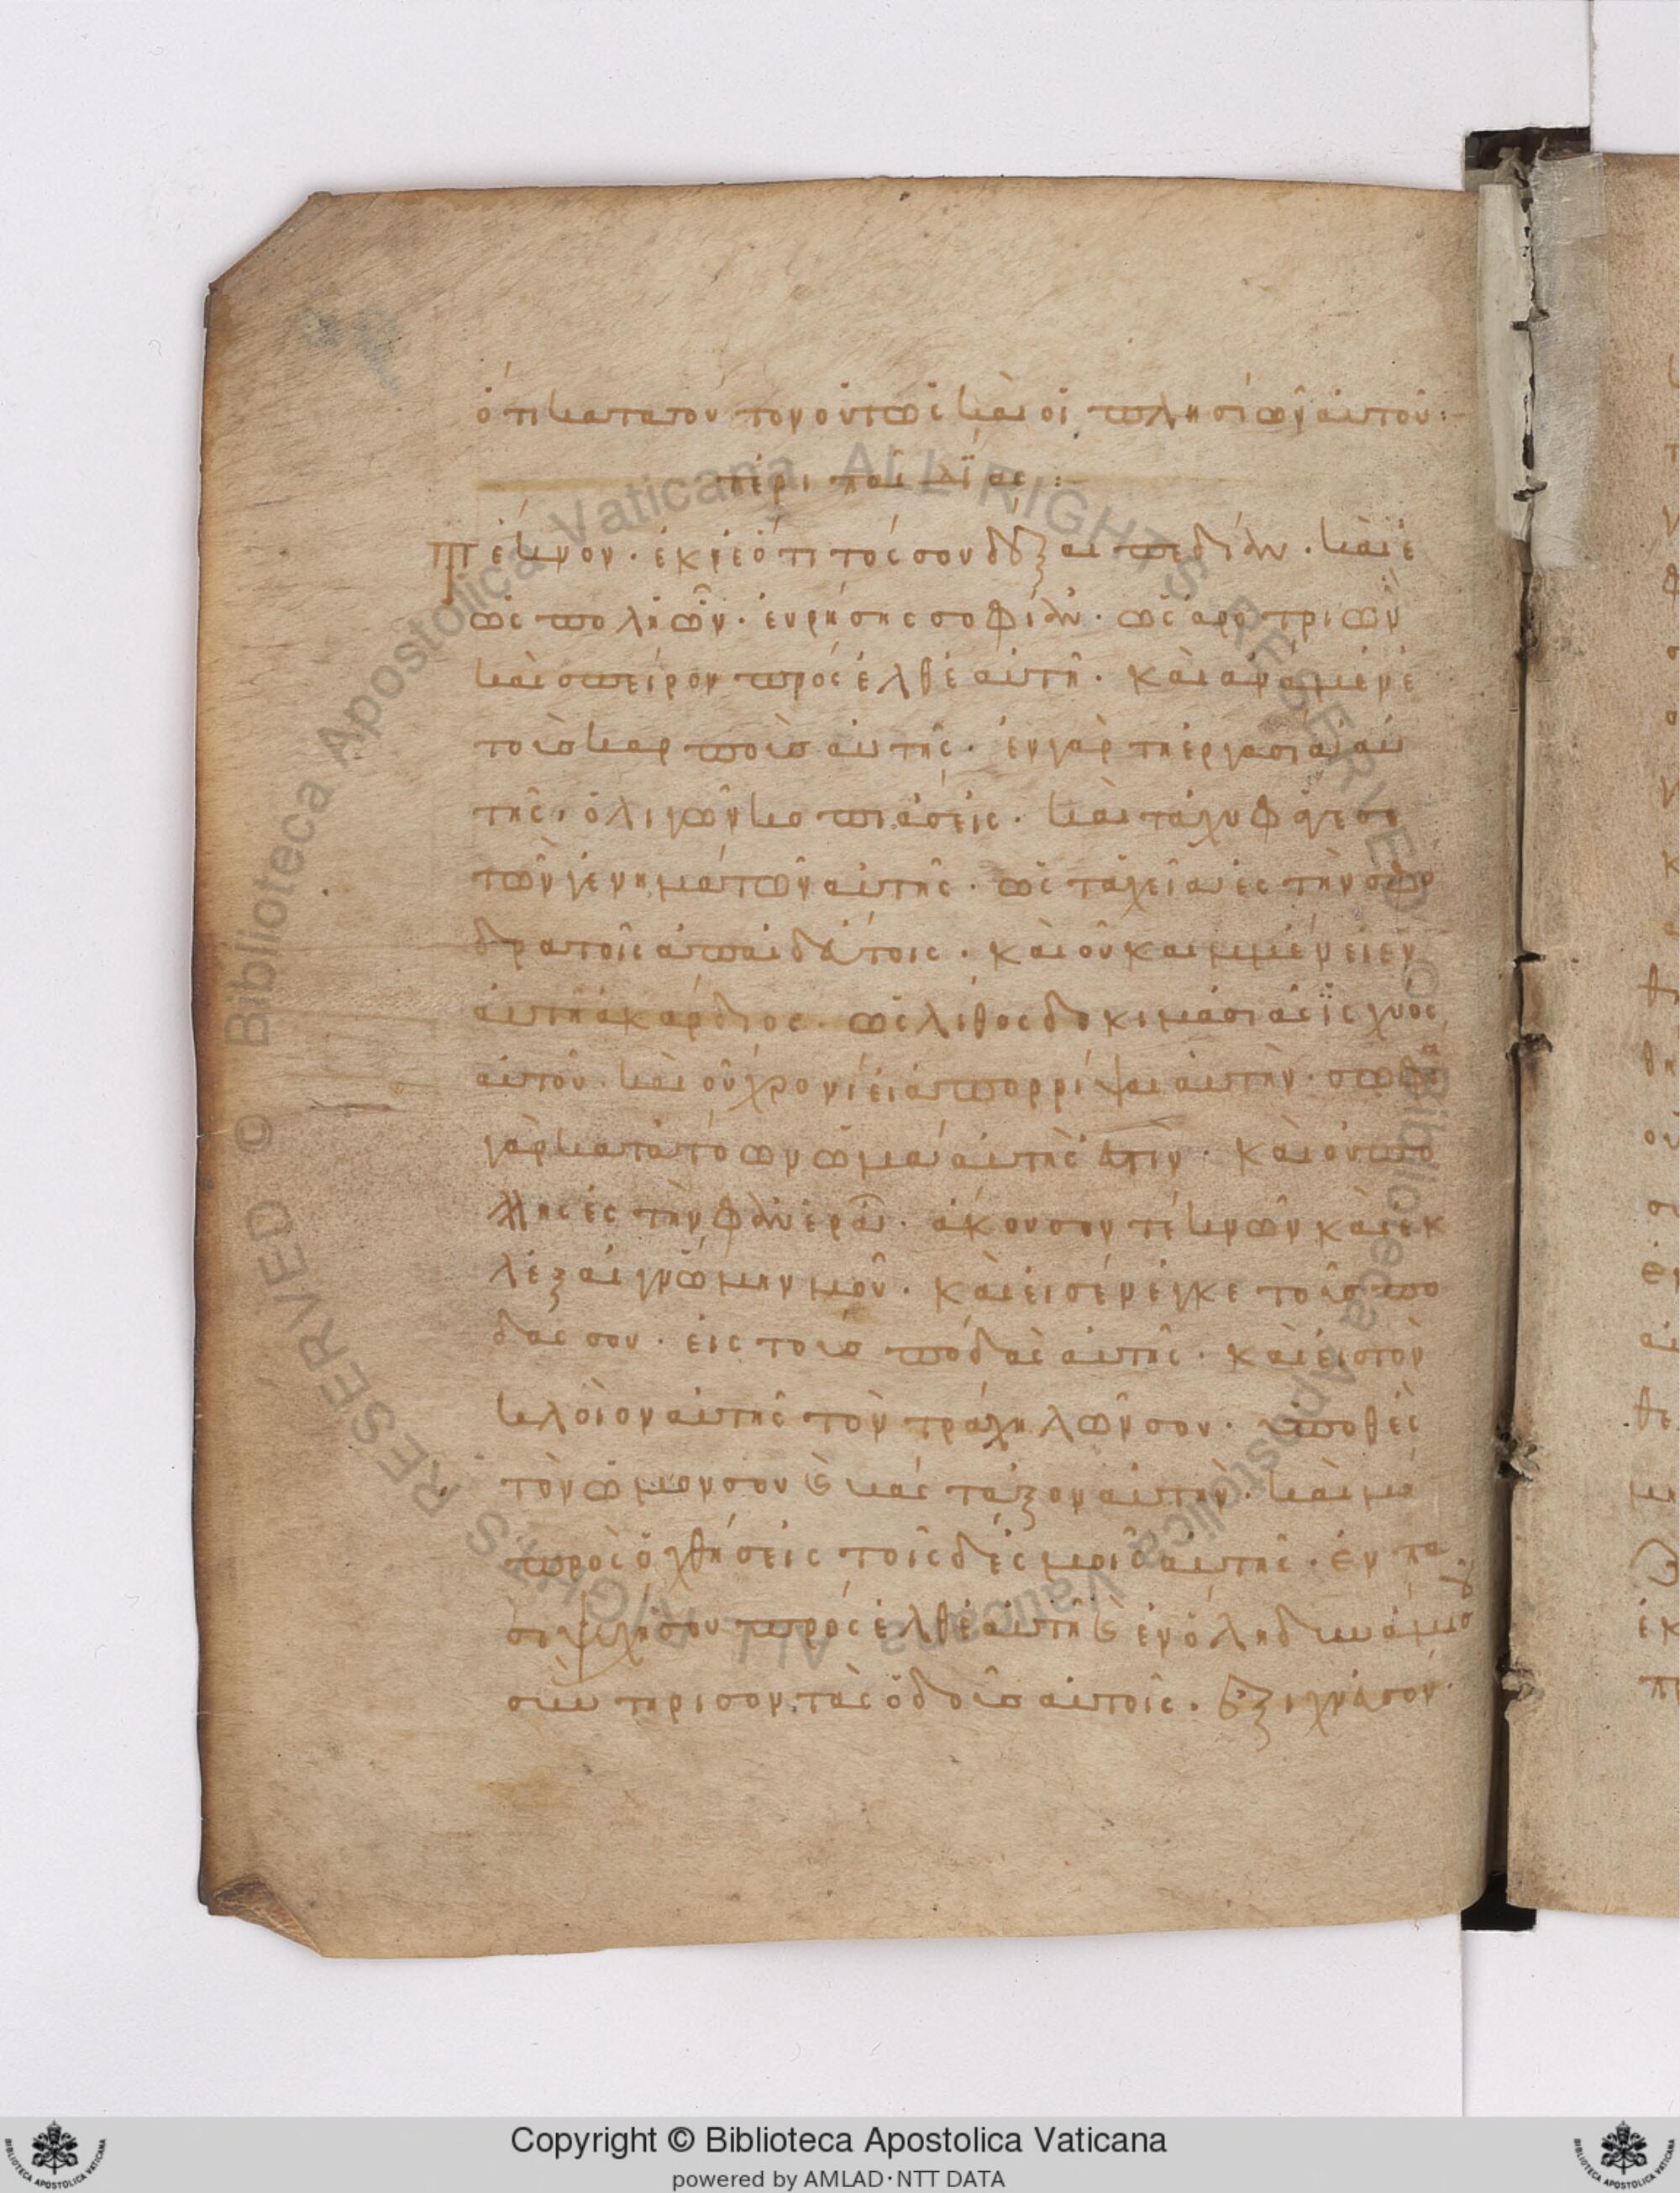 ὅτι κατα τον τον οὑτως καὶ οἱ πλησίων αὐτοῦ:
περι παιδίας:
Τέκνον. ἐκ νεότιτός σου δὸξαι πεδίαν. καὶ ἑ
ὡς πολιῶν. ἑυρήσης σοφίαν. ὡς ἀροτριῶν
καὶ σπείρον πρόσελθε αὐτῆ. καὶ ανάμενε
τοὺσ καρποὺσ αὐτῆς. ἐν γὰρ τῆ ἐργασια αὐ
τῆς, ὀλιγῶν κοπιάσεις. καὶ ταχυ φάγεσε
τῶν γενηματων αὐτῆς. ὡς ταχεία ἐς τὴν σφο
δρα τοῖς ἀπαιδεύτοις. καὶ οὐκ αιμμένει εν
αὐτῆ ἀκαρδιος. ὡς λίθος δοκιμάσιας ἰσχυος
αὐτοῦ. καὶ οὐ χρονιεί ἀπορρίψαι αὐτὴν. σοφία
γὰρ κατὰ τὸ ωνωμα αὐτῆς ἐστὶν. καὶ οὐ πο
λλης ἐς τὴν φανερὰ. ἄκουσον τέκνων καὶ εκ
λέξαι γνώμην μοῦ. καὶ εισένεγκε τοὺσ πο
δας σου. εἰς τοὺσ πόδας αὐτῆς. καὶ εἰσ τὸν
κλοιὸν αὐτῆς τὸν τράχηλων σου. υποθὲς
τὸν ὦμον σου καὶ βάσταξον αὐτὴν. καὶ μὴ
προσοχθήσεις τοῖς δεσμοῖς αὐτῆς. ἐν πα
ση ψυχῆ σου πρόσελθε αὐτῆ καὶ ἐν ὅλη δυνάμει σου
συντηρισον τὰς ὁδοὺσ αὐτοῖς. ἐξιχνίασον.